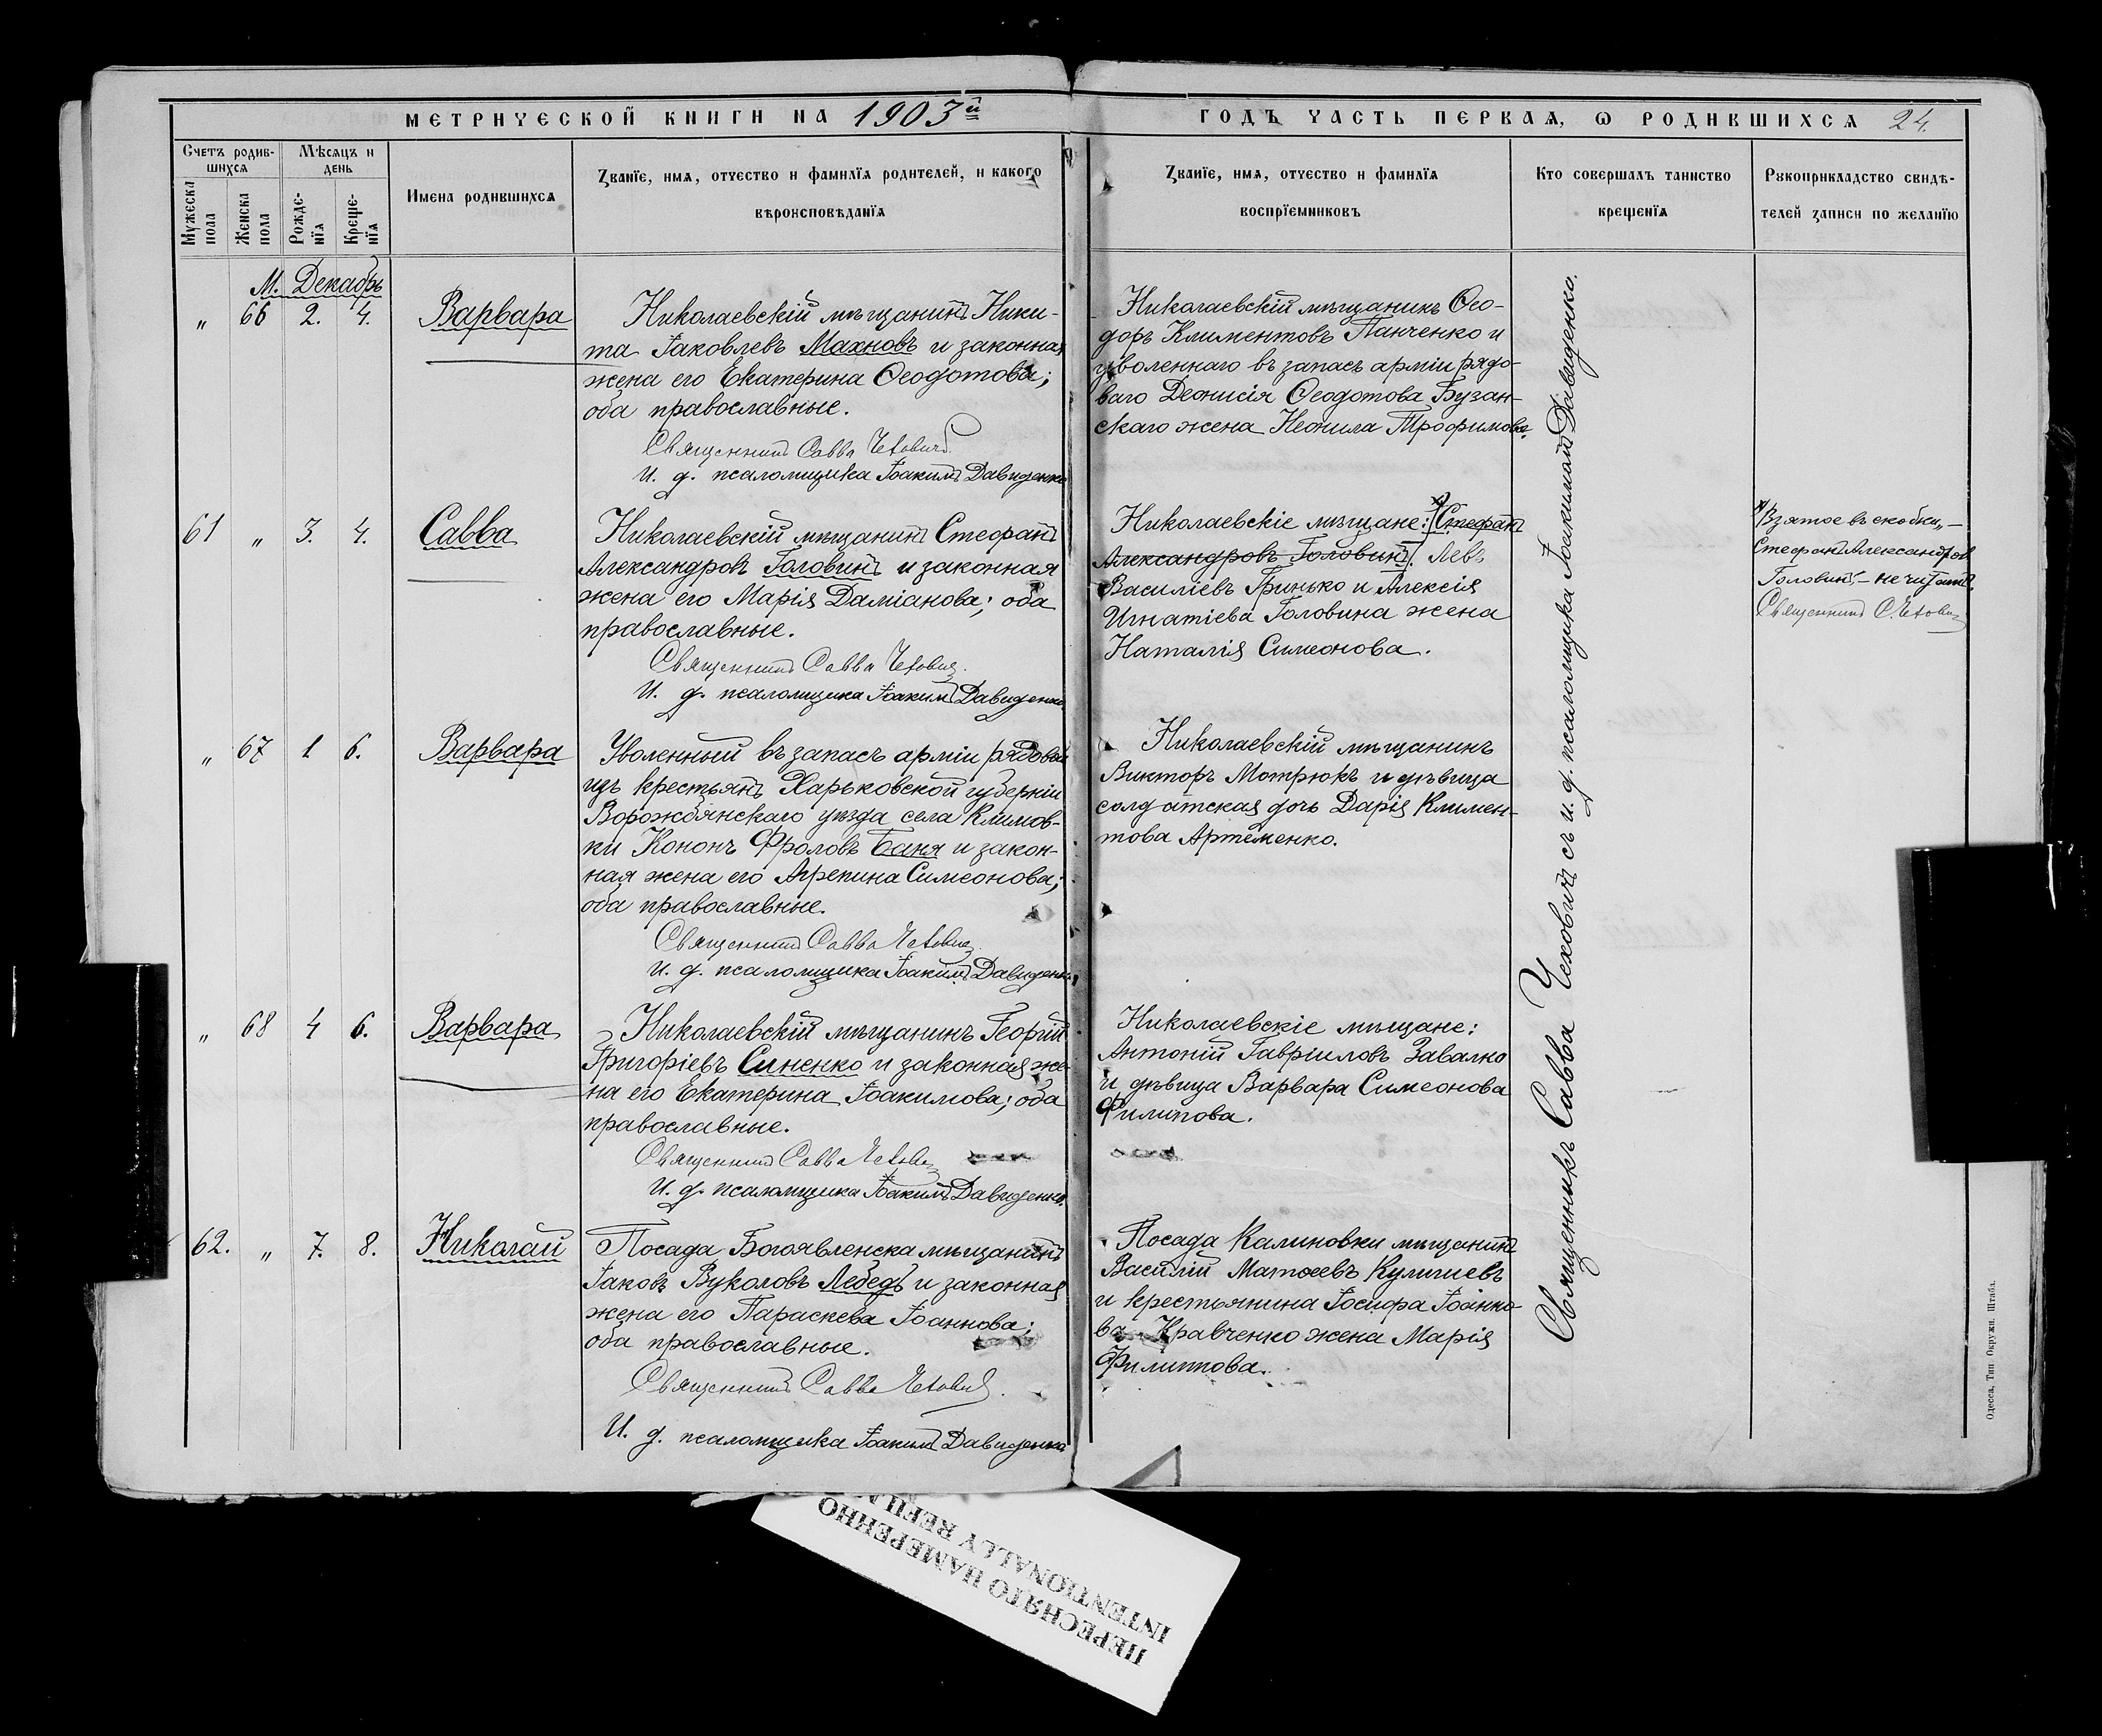 МЕТРИЧЕСКОЙ КНИГИ НА 1903й
ГОДЪ ЧАСТЬ ПЕРВАЯ, Ѡ РОДИВШИХСЯ 24.
Счетъ родив-
шихся
Мѣсяцъ и
день
Мужеска
пола
Женска
пола
Рожде-
нїя
Креще-
нїя
Имена родившихся
Званїе, имя, отчество и фамилїя родителей, и какого
вѣроисповѣданїя
Званїе, имя, отчество и фамилїя
воспрїемниковъ
Кто совершалъ таинство
крещенїя
Рукоприкладство свидѣ-
телей записи по желанїю
М. Декабрь
„ 66 2. 4. Варвара
Николаевскій мѣщанинъ Ники-
та Іаковлевъ Махновъ и законная
жена его Екатерина Ѳеодотова;
оба православные.
Священникъ Савва Чеховичъ.
И. д. псаломщика Іоакимъ Давиденко
Николаевскій мѣщанинъ Ѳео-
доръ Климентовъ Панченко и
уволеннаго въ запасъ арміи рядо-
ваго Деонисія Ѳеодотова Бузан-
скаго жена Неонила Трофимова.
61 „ 3. 4. Савва
Николаевскій мѣщанинъ Стефанъ
Александровъ Головинъ и законная
жена его Марія Даміанова; оба
православные.
Священникъ Савва Чеховичъ.
И. д. псаломщика Іоакимъ Давиденко
Николаевскіе мѣщане: [Стефанъ
Александровъ Головинъ]. Левъ
Василіевъ Гринько и Алексія
Игнатіева Головина жена
Наталія Симеонова.
Взятое въ скобки „—
Стефанъ Александровъ
Головинъ", — не читать.
Священникъ С. Чеховичъ
„ 67 1 6. Варвара
Уволенный въ запасъ арміи рядовой
изъ крестьянъ Харьковской губерніи
Ворожбянскаго уѣзда села Климов-
ки Кононъ Фроловъ Баня и закон-
ная жена его Агрепина Симеонова;
оба православные.
Священникъ Савва Чеховичъ.
И. д. псаломщика Іоакимъ Давиденко
Николаевскій мѣщанинъ
Викторъ Мотрюкъ и дѣвица
солдатская дочь Дарія Климен-
това Артёменко.
„ 68 4 6. Варвара
Николаевскій мѣщанинъ Георгій
Григоріевъ Синенко и законная же-
на его Екатерина Іоакимова; оба
православные.
Священникъ Савва Чеховичъ
И. д. псаломщика Іоакимъ Давиденко.
Николаевскіе мѣщане:
Антоній Гавріиловъ Завалко
и дѣвица Варвара Симеонова
Филипова.
62. „ 7. 8. Николай
Посада Богоявленска мѣщанинъ
Іаковъ Вуколовъ Лебедь и законная
жена его Параскева Іоаннова;
оба православные.
Священникъ Савва Чеховичъ.
И. д. псаломщика Іоакимъ Давиденко
Посада Калиновки мѣщанинъ
Василій Матѳеевъ Куличевъ
и крестьянина Іосифа Іоанно-
ва Кравченко жена Марія
Филиппова.
Священникъ Савва Чеховичъ съ и. д. псаломщика Іоакимомъ Давиденко.
Одесса, Тип Окружн. Штаба.
ПЕРЕСНЯТО НАМЕРЕННО
INTENTIONALLY REFILM